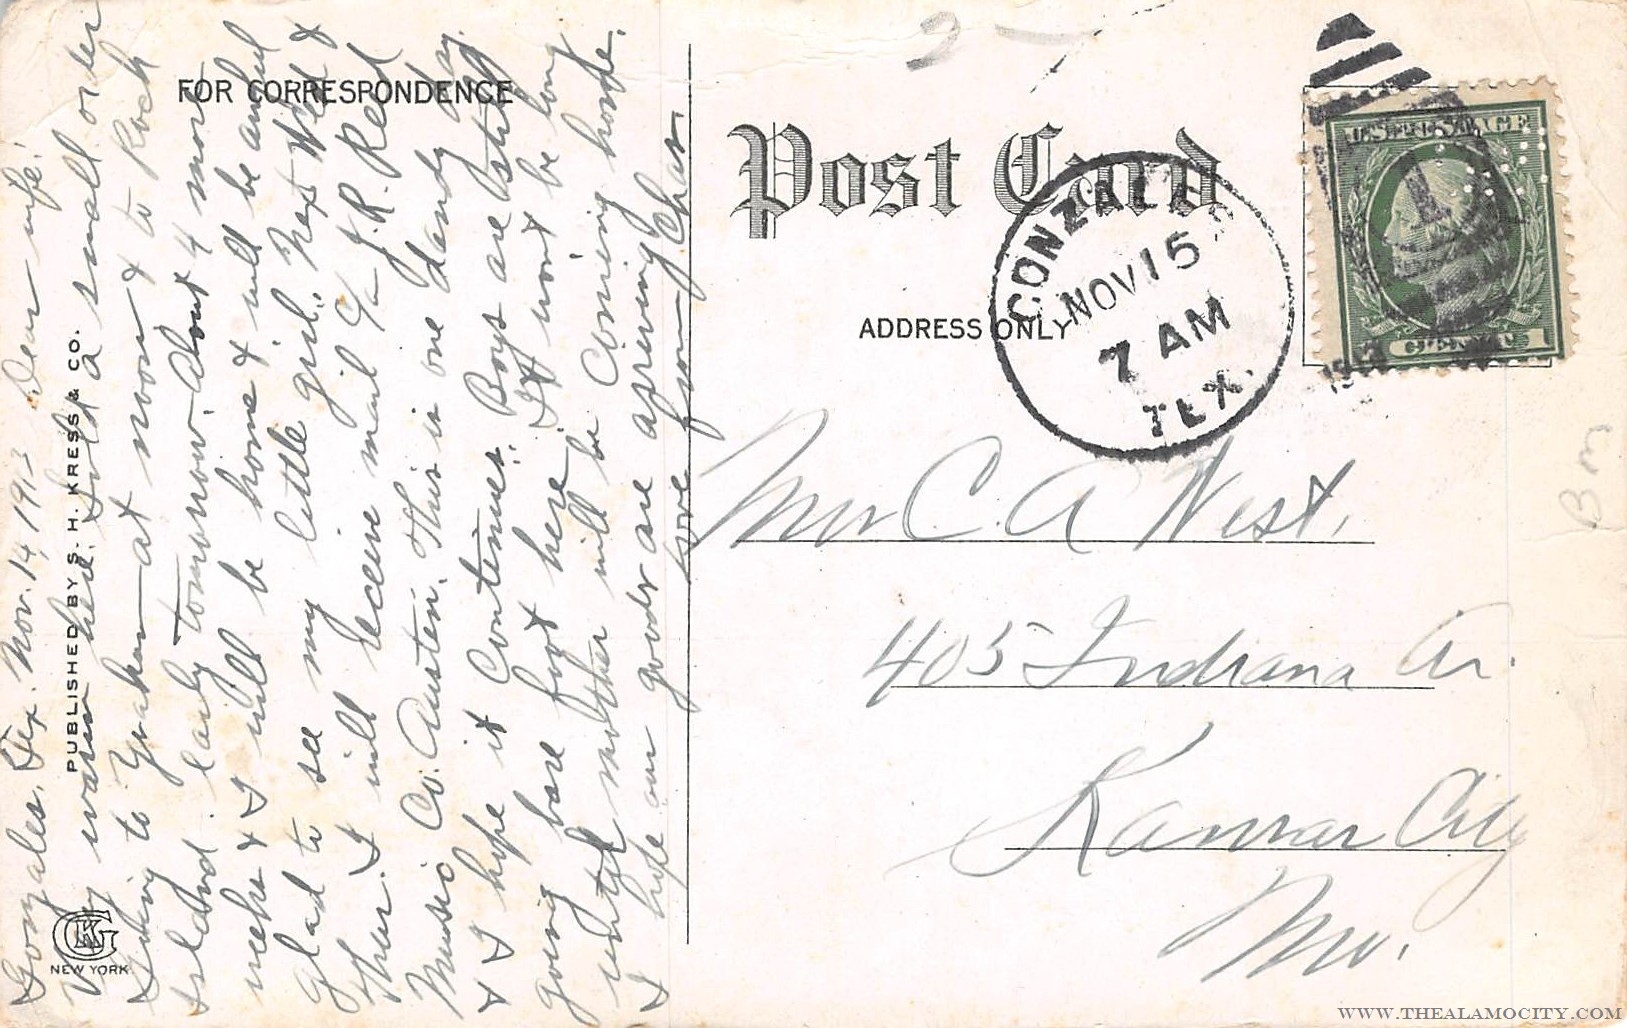 FOR CORRESPONDENCE
Gonzales, Tex. Nov. 14, 1913 Dear wife:
Very warm here. Sold a small order
Going to Yoakum at noon & to Rock
Island early tomorrow. About 4 more
weeks & I will be home & will be awful
glad to see my little girl. Next Wed &
Thur. I will receive mail c/o J. R. Reed
Music Co. Austin. This is one dandy day.
& I hope it continues. Boys are still
going bare foot here. It wont be long
until mother will be coming home.
I hope our goods are arriving
love from Chas.
PUBLISHED BY S. H. KRESS & CO.
NEW YORK
Post Card
ADDRESS ONLY
GONZALES
NOV 15
7 AM
TEX.
U.S. POSTAGE
1
Mrs C. A. West,
405 Indiana Av.
Kansas City
Mo.
WWW.THEALAMOCITY.COM